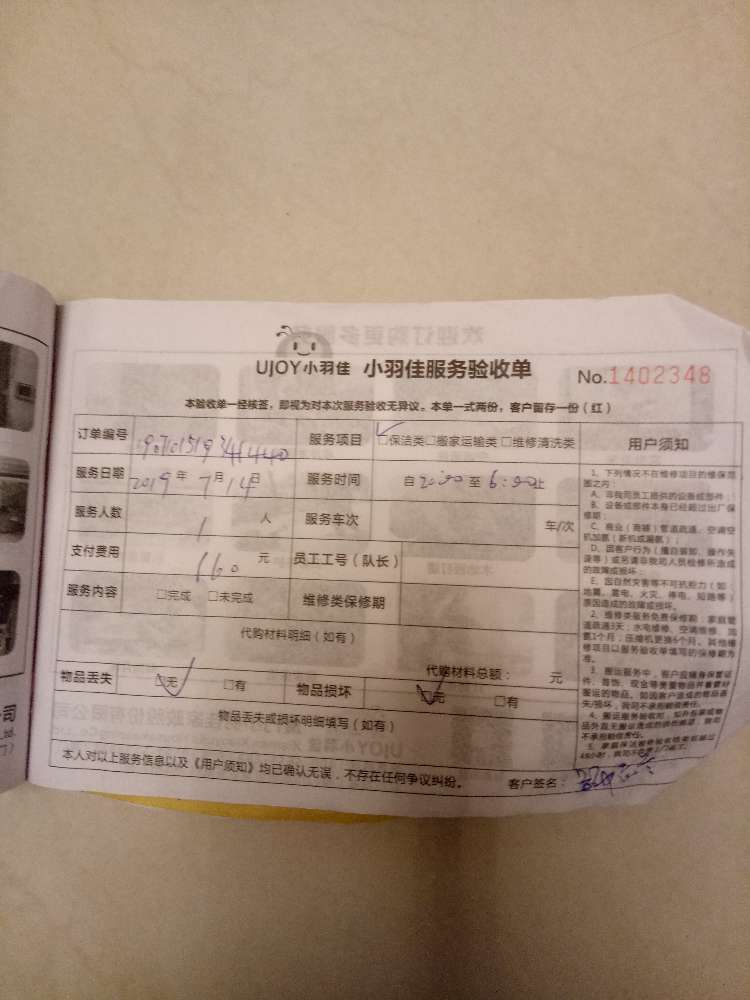 UJOY小羽佳 小羽佳服务验收单 No.1402348
本验收单一经核签，即视为对本次服务验收无异议。本单一式两份，客户留存一份（红）
订单编号 服务项目 □保洁类□搬家运输类□维修清洗类 用户须知
服务日期 2019年7月14日 服务时间 自 至 止
服务人数 1 人 服务车次 车/次
支付费用 160 元 员工工号（队长）
服务内容 □完成 □未完成 维修类保修期
代购材料明细（如有）
代购材料总额： 元
物品丢失 □无 □有 物品损坏 □无 □有
物品丢失或损坏明细填写（如有）
本人对以上服务信息以及《用户须知》均已确认无误，不存在任何争议纠纷。 客户签名：
1、下列情况不在维修项目的维保范
围之内：
A、非我司员工提供的设备或部件；
B、设备或部件本身已经超过出厂保
修期；
C、商业（商铺）管道疏通、空调空
机加氨（新机或漏氨）；
D、因客户行为（擅自装卸、操作失
误等）或另请非我司人员检修所造成
的故障或损坏；
E、因自然灾害等不可抗拒力（如：
地震、雷电、火灾、停电、短路等）
原因造成的故障或损坏。
2、维修类服务免费保修期：家庭管
道疏通3天；水电维修、空调维修、加
氨1个月；压缩机更换6个月。其他维
修项目以服务验收单填写的保修期为
准。
3、搬运服务中，客户应随身保管证
件、首饰、现金等贵重物品并看管好
搬运的物品，如因客户造成的物品丢
失/损坏，我司不承担赔偿责任。